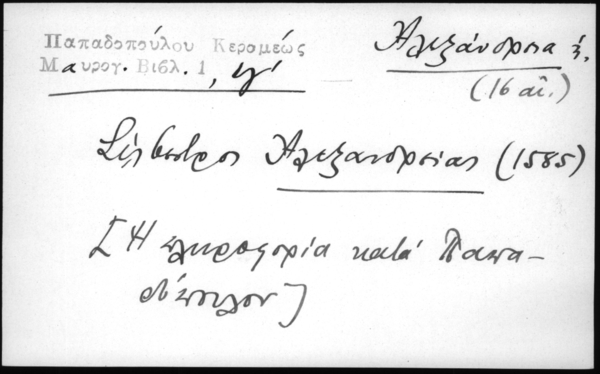 Παπαδοπούλου Κεραμέως
Μαυρογ. Βιβλ. 1, ιγ'
Ἀλεξάνδρεια
(16 αἰ.)
Σίλβεστρος Ἀλεξανδρείας (1585)
[Ἡ πληροφορία κατά Παπα-
δόπουλον]